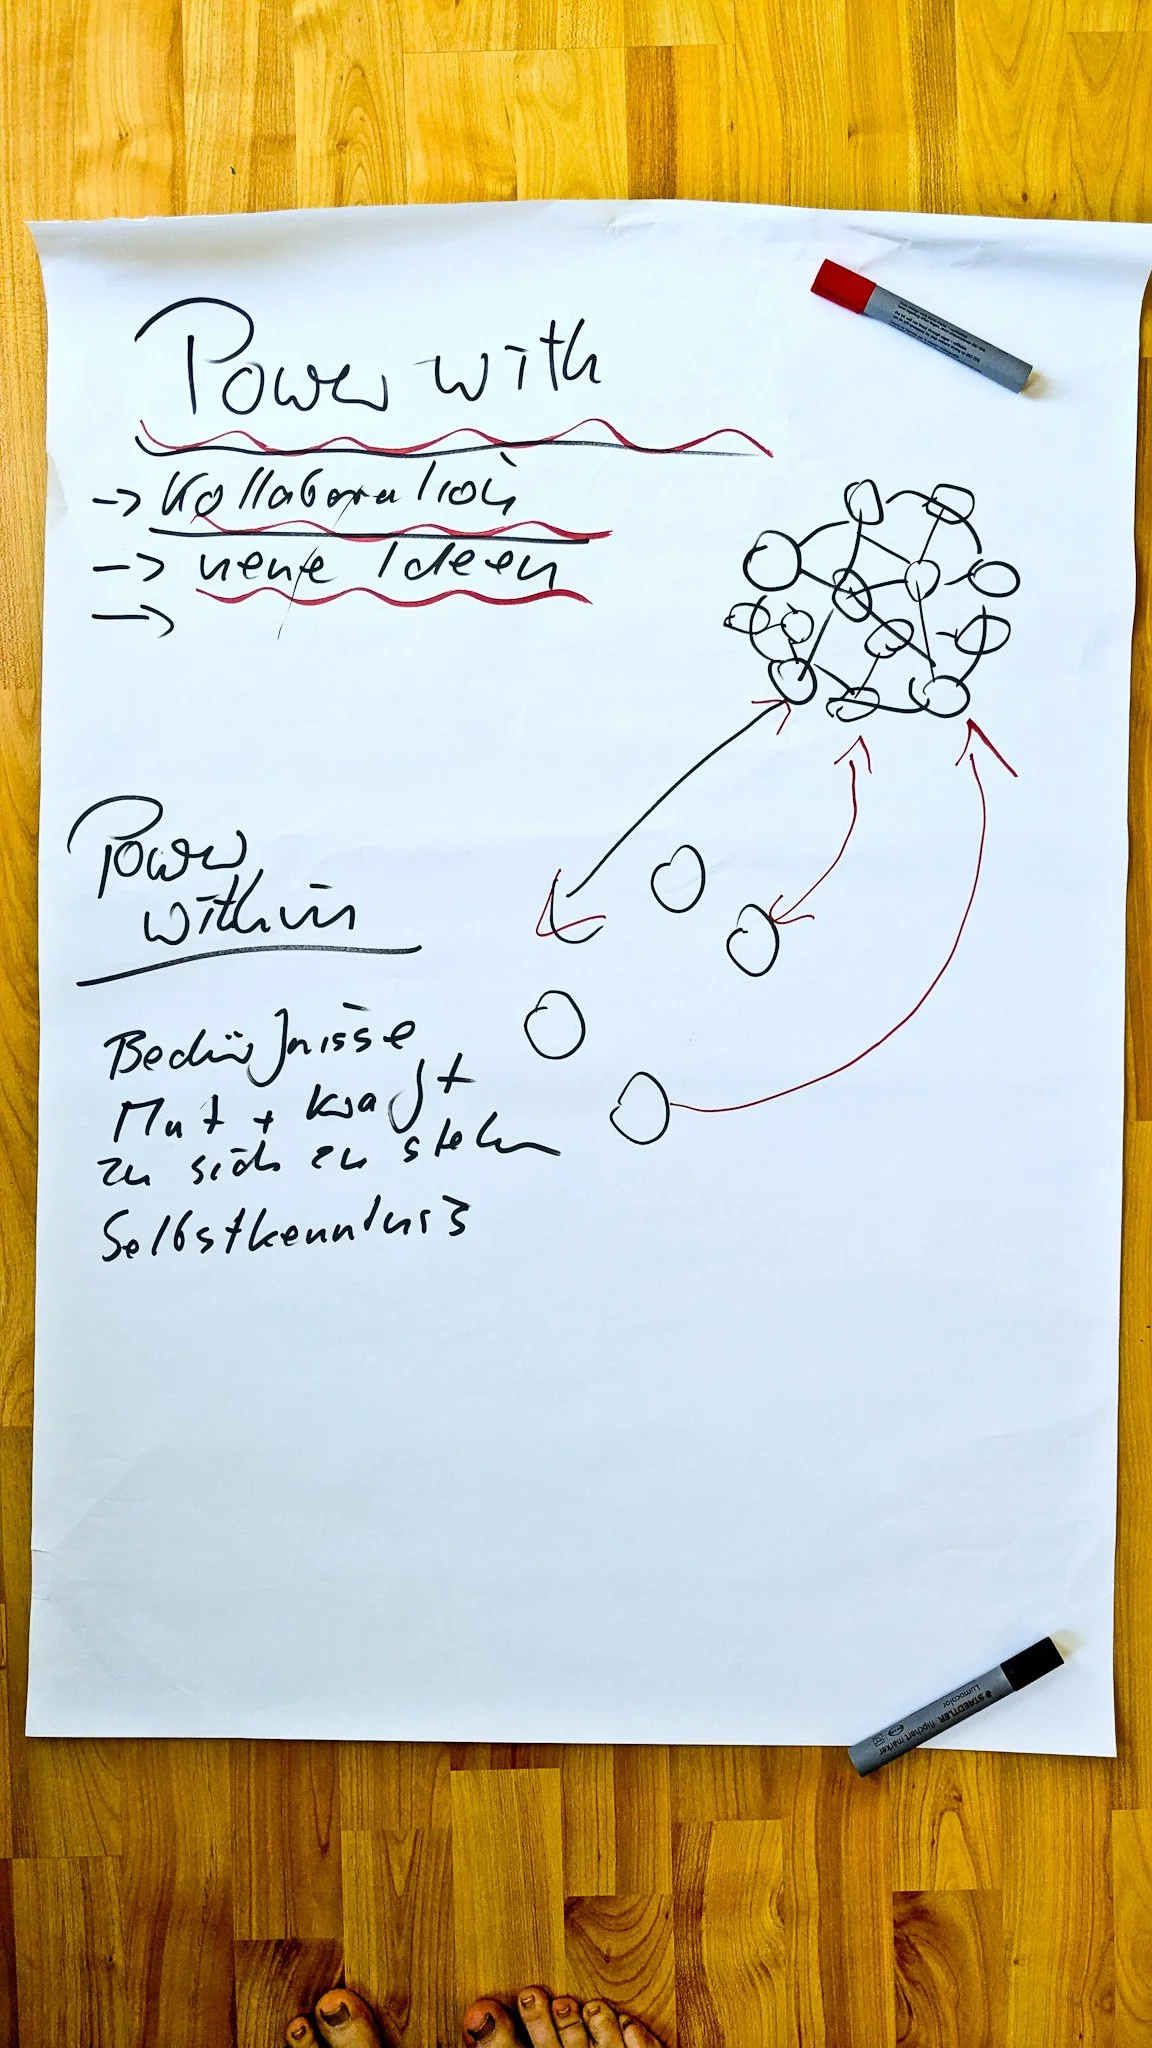 Power with
-> Kollaboration
-> neue Ideen
->
Power
within
Bedürfnisse
Mut + Kraft
zu sich zu stehen
Selbstkenntnis
STAEDTLER flipchart marker
Lumocolor